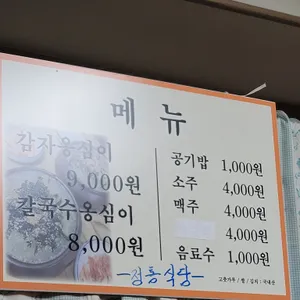 메뉴
감자옹심이
9,000원
칼국수옹심이
8,000원
공기밥 1,000원
소주 4,000원
맥주 4,000원
4,000원
음료수 1,000원
식당